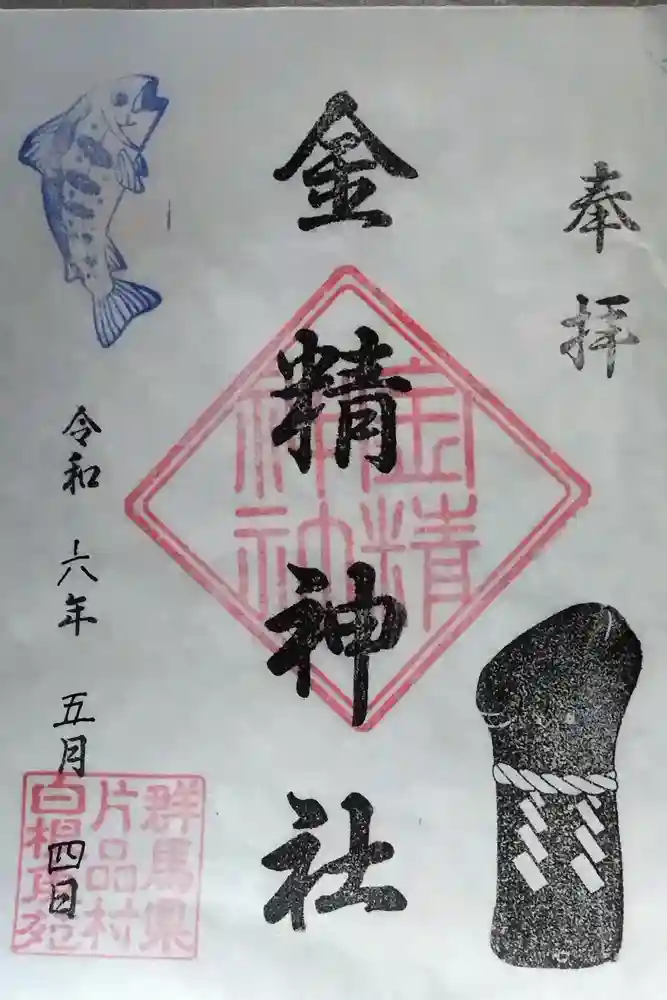 奉拝
金精神社
金精神社
令和六年五月四日
群馬県
片品村